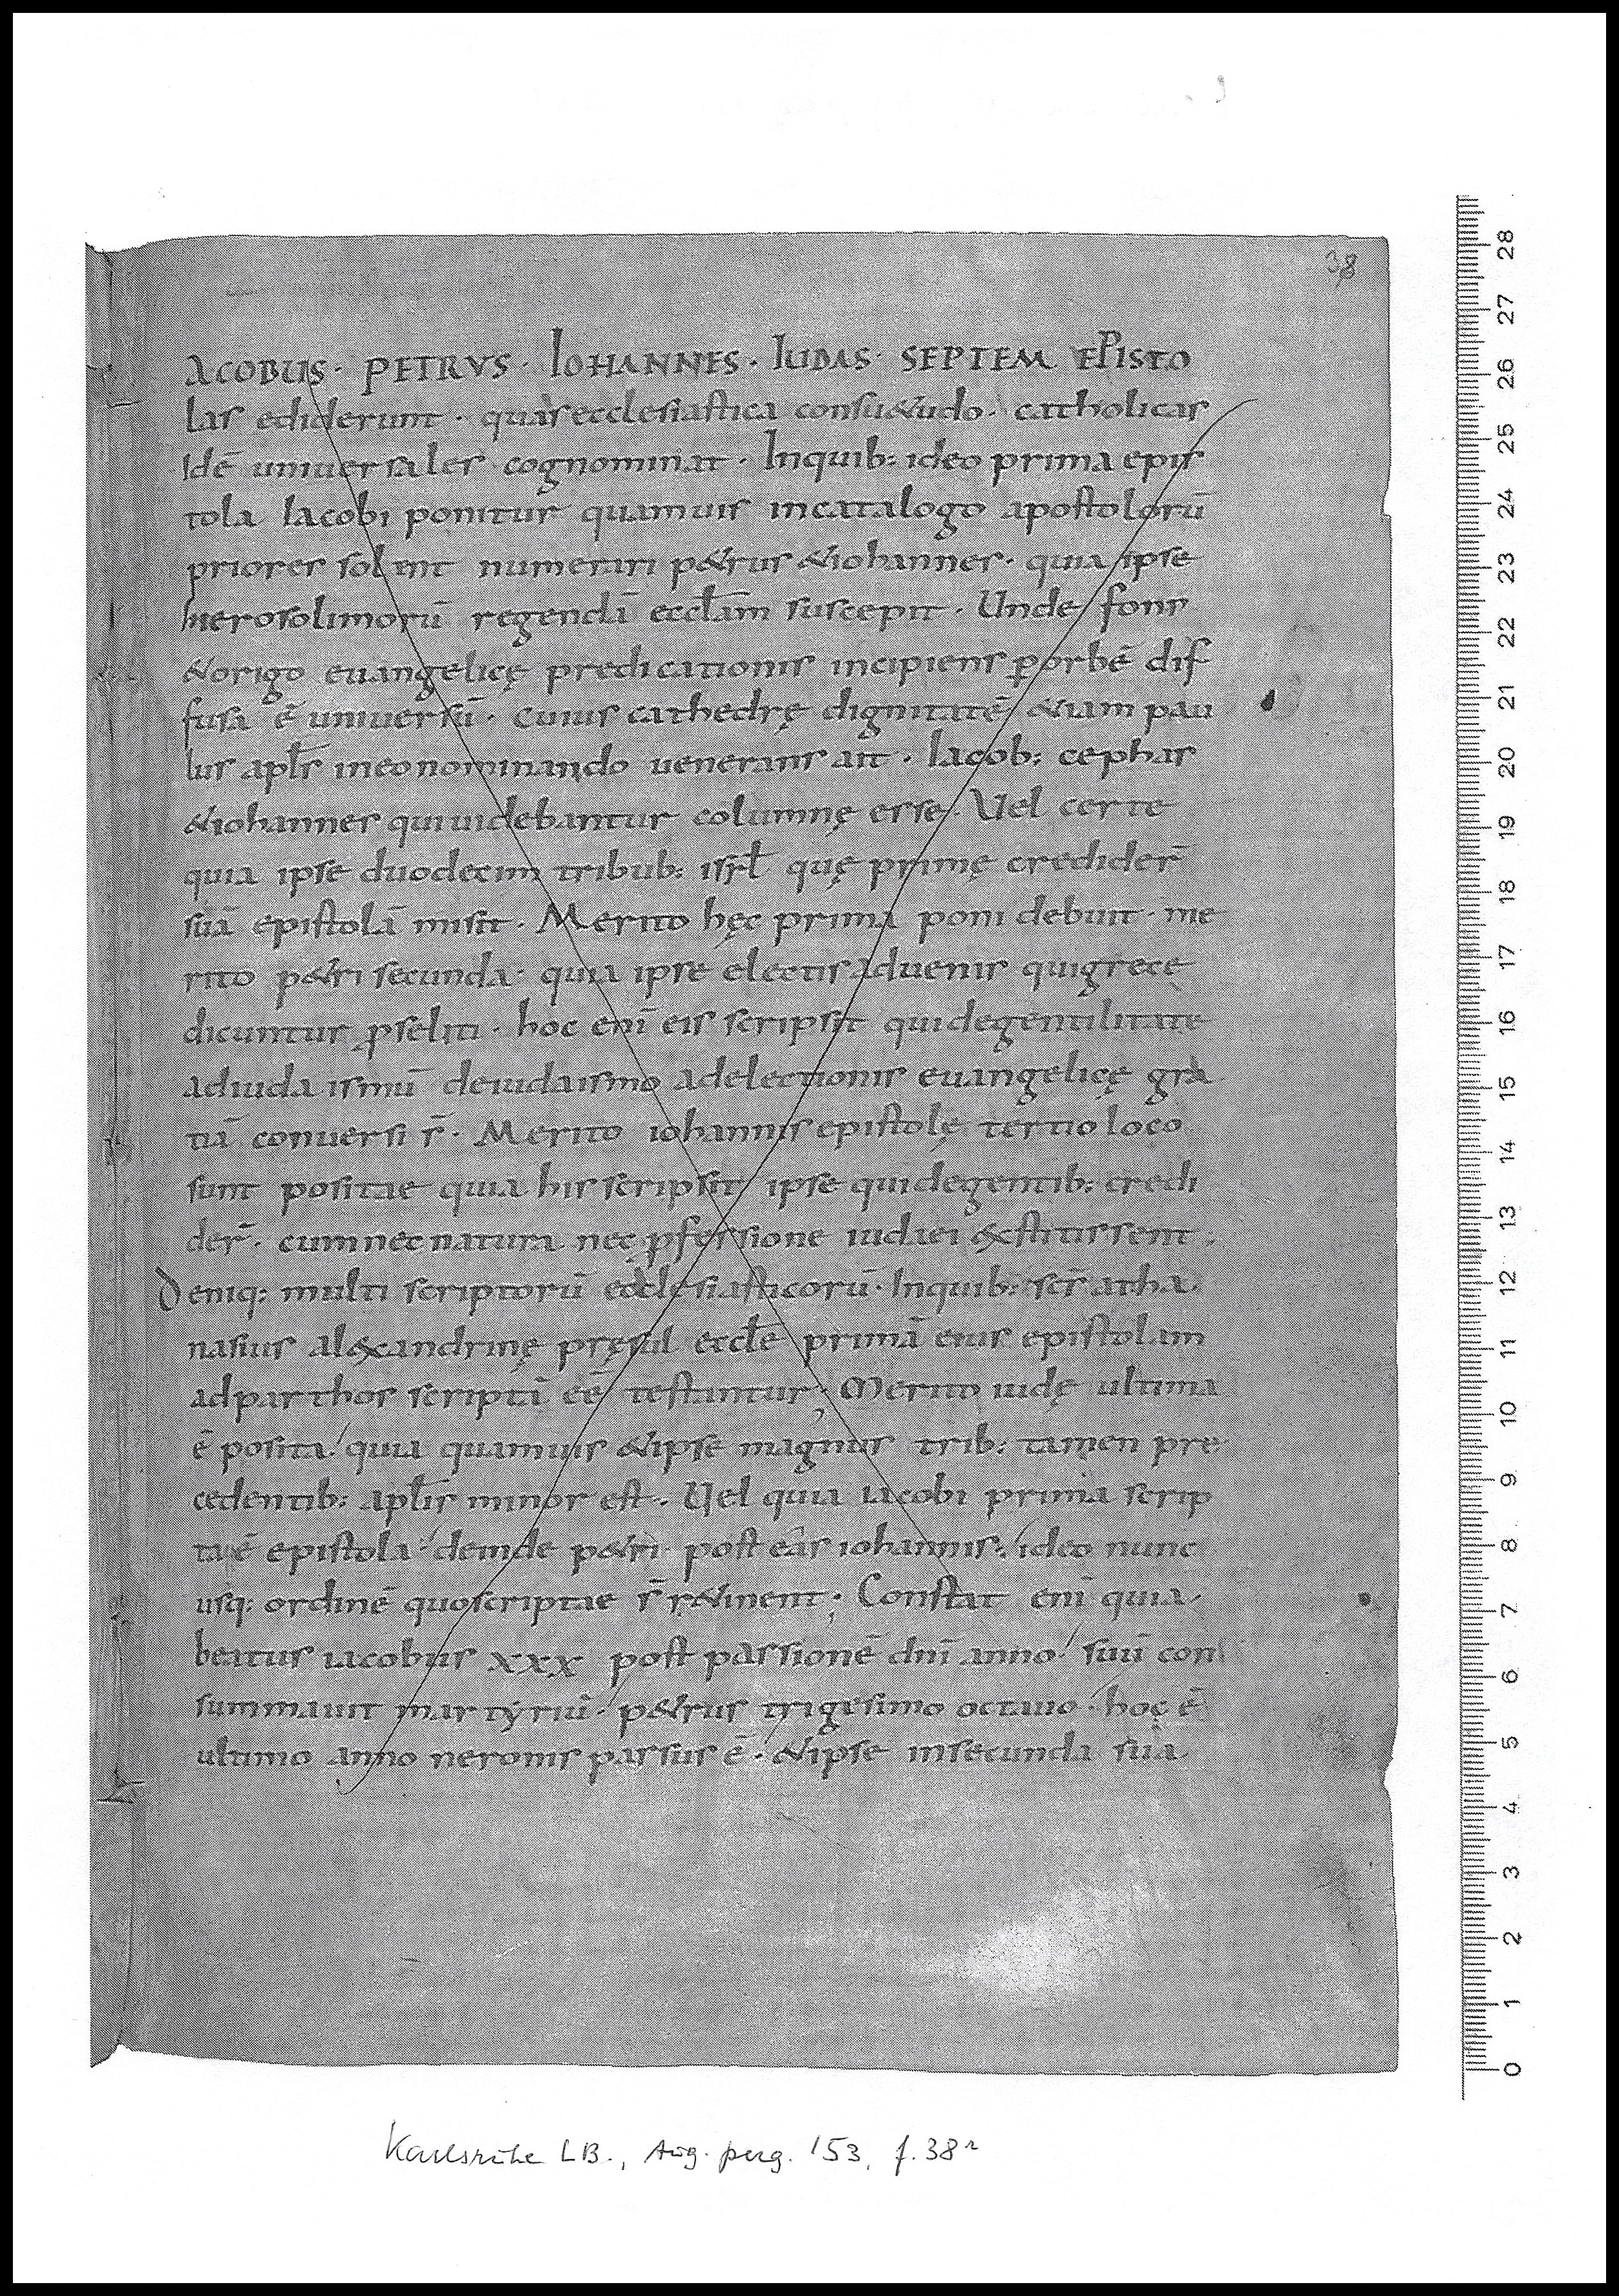 38
ACOBUS · PETRVS · IOHANNES · IUDAS · SEPTEM EPISTO
las ediderunt · quas ecclesiastica consu&udo · catholicas
idē universales cognominat · Inquib: ideo prima epis
tola Iacobi ponitur quamuis incatalogo apostolorū
priores solent numerari p&rus &iohannes · quia ipse
hierosolimorū regendā eccl̄am suscepit · Unde fons
&origo euangelicę predicationis incipiens p̱ orbē dif
fusa ē universū · cuius cathedrę dignitatē &iam pau
lus apl̄s ineonominando uenerans ait · Iacob: cephas
&iohannes quiuidebantur columnę esse · Vel certe
quia ipse duodecim tribub: isr̄l quę primę credider̄
suā epistolā misit · Merito hęc prima poni debuit · me
rito p&ri secunda · quia ipse electis aduenis quigrece
dicuntur p̱seliti · hoc enī eis scripsit quidegentilitate
adiudaismū deiudaismo adelectionis euangelicę gra
tiā conversi s̄ · Merito iohannis epistolę tertio loco
sunt positae quia his scripsit ipse quidegentib: credi
der̄ · cumnec natura nec p̱fessione iudaei &xstitissent ·
Deniq: multi scriptorū ecclesiasticorū · Inquib: sc̄s atha
nasius alexandrinę pręsul eccl̄e primā eius epistolam
adparthos scriptā eē testantur · Merito iudę ultima
ē posita · quia quamuis &ipse magnus trib: tamen pre
cedentib: apl̄is minor est · Vel quia iacobi prima scrip
ta ē epistola · deinde p&ri · post eas iohannis · ideo nunc
usq: ordinē quoscriptae s̄ r&inent · Constat enī quia
beatus iacobus xxx post passionē dn̄i anno · suū con
summauit martyriū · p&rus trigesimo octauo · hoc ē
ultimo anno neronis passus ē · &ipse insecunda sua
28
27
26
25
24
23
22
21
20
19
18
17
16
15
14
13
12
11
10
9
8
7
6
5
4
3
2
1
0
Karlsruhe LB., Aug. perg. 153, f. 38r